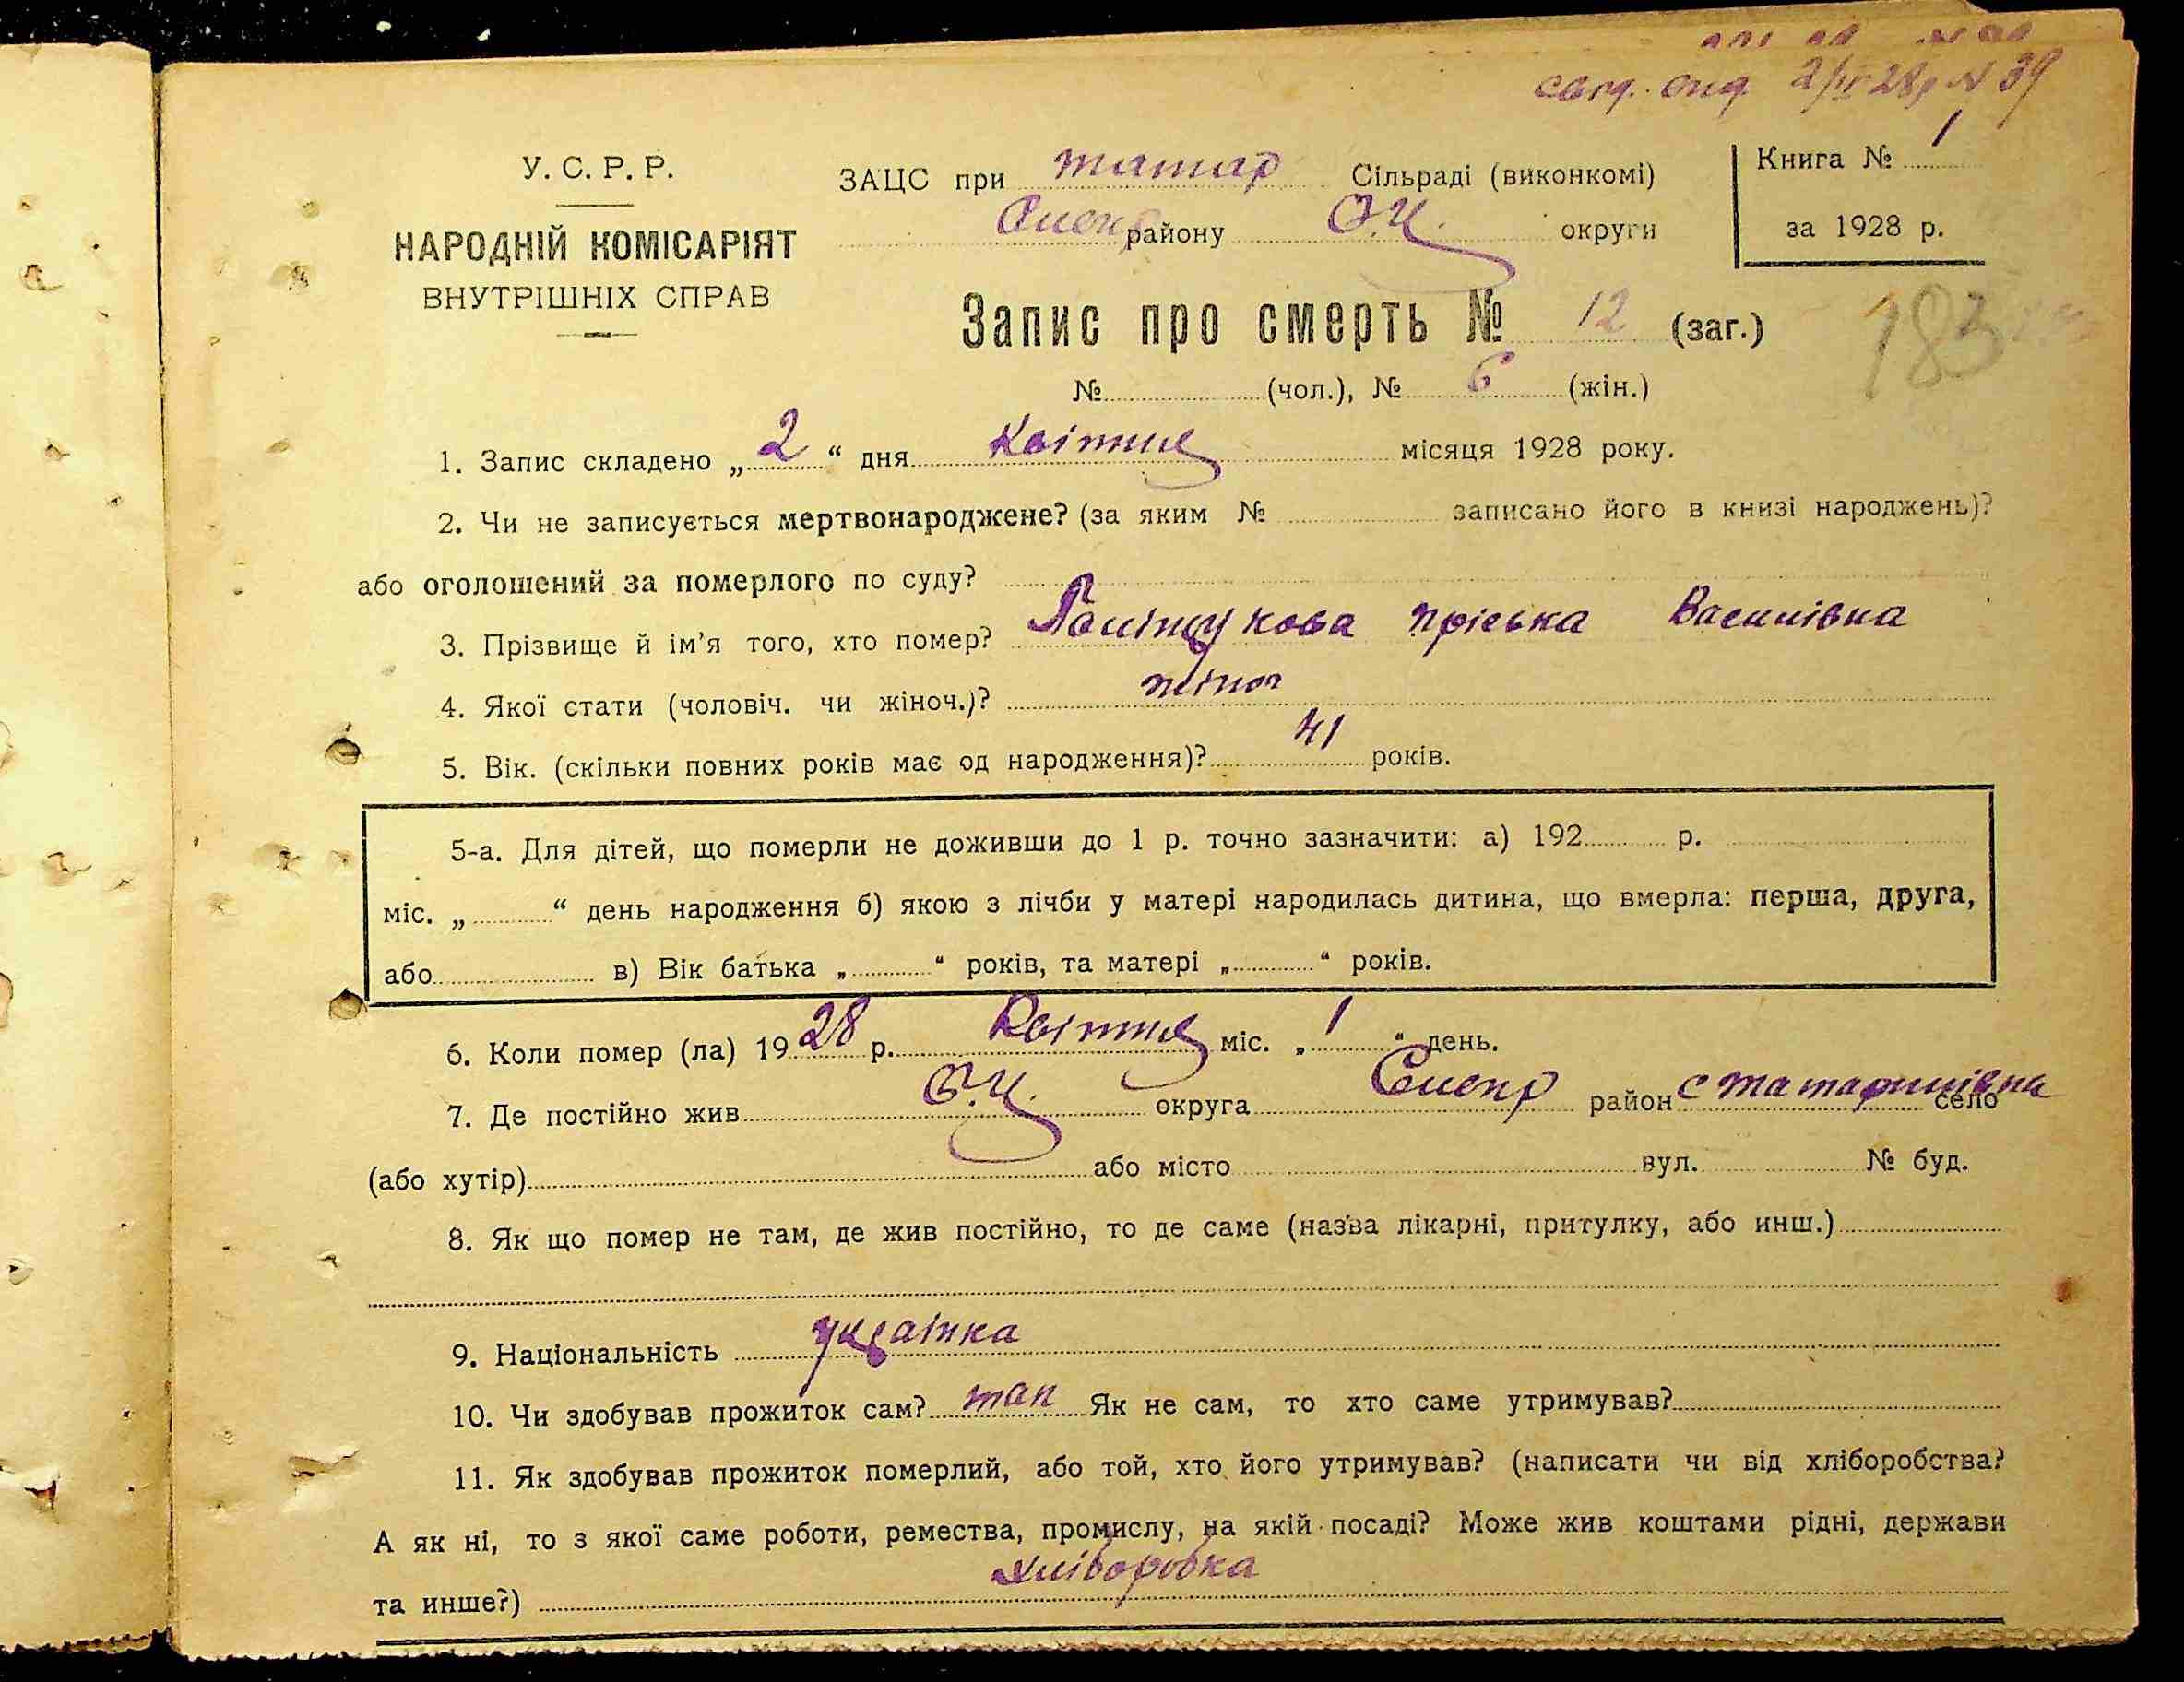 свід. вид. 2/IV-28р № 39
У. С. Р. Р.
НАРОДНІЙ КОМІСАРІЯТ
ВНУТРІШНІХ СПРАВ
ЗАЦС при татар Сільраді (виконкомі)
району О.Ц. округи
Книга № 1
за 1928 р.
Запис про смерть № 12 (заг.)
183
№ (чол.), № 6 (жін.)
1. Запис складено „2“ дня Квітня місяця 1928 року.
2. Чи не записується мертвонароджене? (за яким № записано його в книзі народжень)?
або оголошений за померлого по суду?
3. Прізвище й ім’я того, хто помер? Пріська Василівна
4. Якої стати (чоловіч. чи жіноч.)? жіноч
5. Вік. (скільки повних років має од народження)? 41 років.
5-а. Для дітей, що померли не доживши до 1 р. точно зазначити: а) 192 р.
міс. „ “ день народження б) якою з лічби у матері народилась дитина, що вмерла: перша, друга,
або в) Вік батька „ “ років, та матері „ “ років.
6. Коли помер (ла) 1928 р. Квітня міс. „1“ день.
7. Де постійно жив О.Ц. округа район село
(або хутір) або місто вул. № буд.
8. Як що помер не там, де жив постійно, то де саме (назва лікарні, притулку, або инш.)
9. Національність українка
10. Чи здобував прожиток сам? так Як не сам, то хто саме утримував?
11. Як здобував прожиток померлий, або той, хто його утримував? (написати чи від хліборобства?
А як ні, то з якої саме роботи, ремества, промислу, на якій посаді? Може жив коштами рідні, держави
та инше?) хліборобка